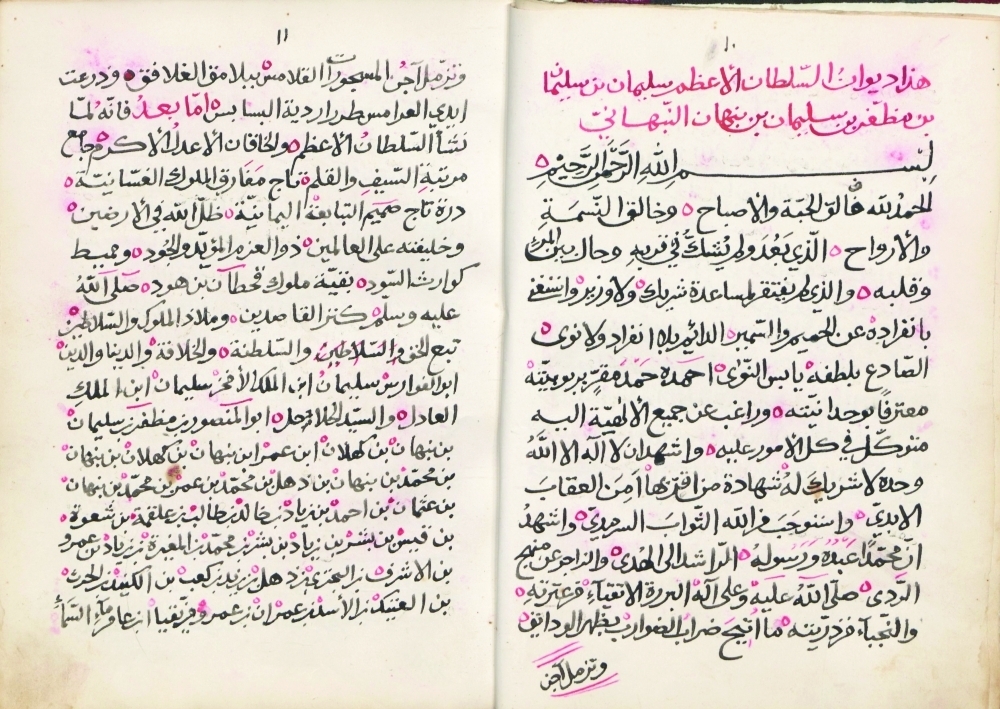 ١٠
هذا ديوان السلطان الأعظم سليمان بن سليمان
بن مظفر بن سليمان بن بنهان النبهاني
بسم الله الرحمن الرحيم
الحمد لله فالق الحبة والاصباح وخالق النسمة
والأرواح الذي بعد ولم يشك في قربه وحال بين المرء
وقلبه والذي لم يفتقر لمساعدة شريك ولا وزير واستغنى
بانفراده عن الحميم والسمير الدائم بلا انفراد ولا نوى
الصادع بلطفه يابس النوى احمده حمد مقر بربوبيته
معترفا بوحدانيته وراغب عن جميع الالهية اليه
متوكل في كل الامور عليه واشهد ان لا اله الا الله
وحده لا شريك له شهادة من اقر بها أمن العقاب
الابدي واستوجب من الله الثواب السرمدي واشهد
ان محمدا عبده ورسوله الراشد الى الهدى والزاجر عن منهج
الردى صلى الله عليه وعلى آله البررة الاتقياء من عترته
والنجباء من ذريته ما انتج ضراب الضوارب بظهر الودائق
وتزمل آجن
١١
وتزمل آجن المسجورات القلامس ببلامق الغلافق ودرعت
ايدي العرامس طرر اردية البسابس اما بعد فانه لما
نشأ السلطان الأعظم والخاقان الأعدل الأكرم وجامع
مرتبة السيف والقلم تاج مفارق الملوك الغسانية
درة تاج صميم التبابعة اليمانية ظل الله في الأرضين
وخليفته على العالمين ذو العزم المؤيد والجود ومهبط
كوارث السود بقية ملوك قحطان بن هود صلى الله
عليه وسلم كنز القاصدين وملاذ الملوك والسلاطين
تبع الحق والسلاطين والسلطنة والخلافة والدنيا والدين
ابو الفوارس سليمان ابن الملك الأفخر سليمان ابن الملك
العادل والسيد الحلاحل ابو المنصور بن مظفر بن سليمان
بن نبهان بن كهلان ابن عمر ابن نبهان بن كهلان بن نبهان
بن محمد بن نبهان بن ذهل بن محمد بن عمر بن محمد بن نبهان
بن عثمان بن احمد بن زياد بن خالد بن طالب بن علقمة بن شعوة
بن قيس بن بشر بن زياد بن بشر بن محمد بن المغيرة بن زياد بن عمرو
بن الاشرف بن البحتري بن ذهل بن زيد بن كعب بن الكهيد بن الحرث
بن العتيك بن الأسد بن عمران بن عمرو مزيقيا ابن عامر ماء السماء